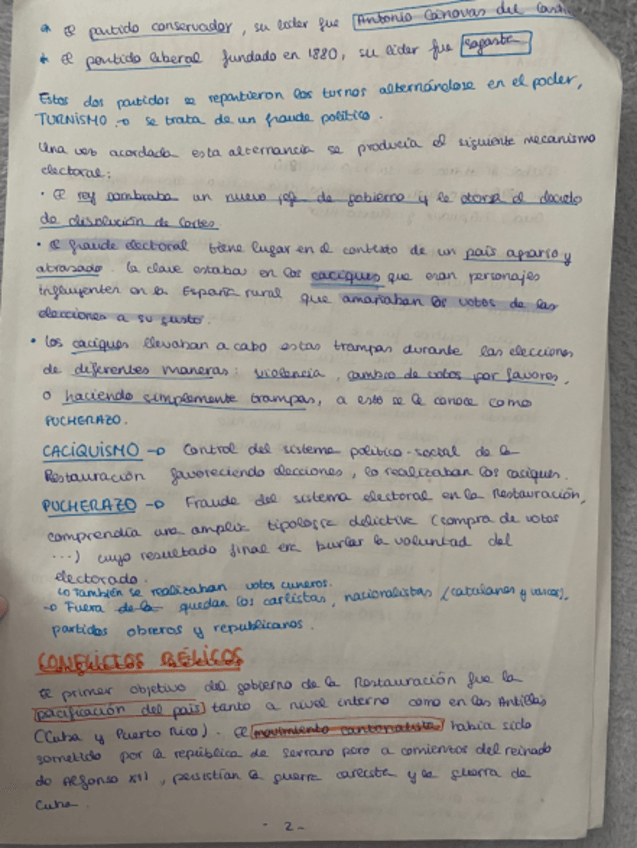 * El partido conservador, su líder fue Antonio Cánovas del
* El partido liberal fundado en 1880, su líder fue Sagasta
Estos dos partidos se repartieron los turnos alternándose en el poder,
TURNISMO → se trata de un fraude político.
Una vez acordada esta alternancia se producía el siguiente mecanismo
electoral:
· El rey nombraba un nuevo jefe de gobierno y le otorga el decreto
de disolución de Cortes.
· El fraude electoral tiene lugar en el contexto de un país agrario y
atrasado. La clave estaba en los caciques que eran personajes
influyentes en la España rural que amañaban los votos de las
elecciones a su gusto.
· Los caciques llevaban a cabo estas trampas durante las elecciones
de diferentes maneras: violencia, cambio de votos por favores,
o haciendo simplemente trampas, a esto se le conoce como
PUCHERAZO.
CACIQUISMO → Control del sistema político-social de la
Restauración favoreciendo elecciones, lo realizaban los caciques.
PUCHERAZO → Fraude del sistema electoral en la Restauración,
comprendía una amplia tipología delictiva (compra de votos
...) cuyo resultado final era burlar la voluntad del
electorado.
↳ También se realizaban votos cuneros.
→ Fuera de la quedan los carlistas, nacionalistas (catalanes y vascos),
partidos obreros y republicanos.
CONFLICTOS BÉLICOS
El primer objetivo del gobierno de la Restauración fue la
pacificación del país tanto a nivel interno como en las Antillas
(Cuba y Puerto Rico). El movimiento cantonalista había sido
sometido por la república de Serrano pero a comientos del reinado
de Alfonso XII, persistían la guerra carlista y la guerra de
Cuba.
- 2 -